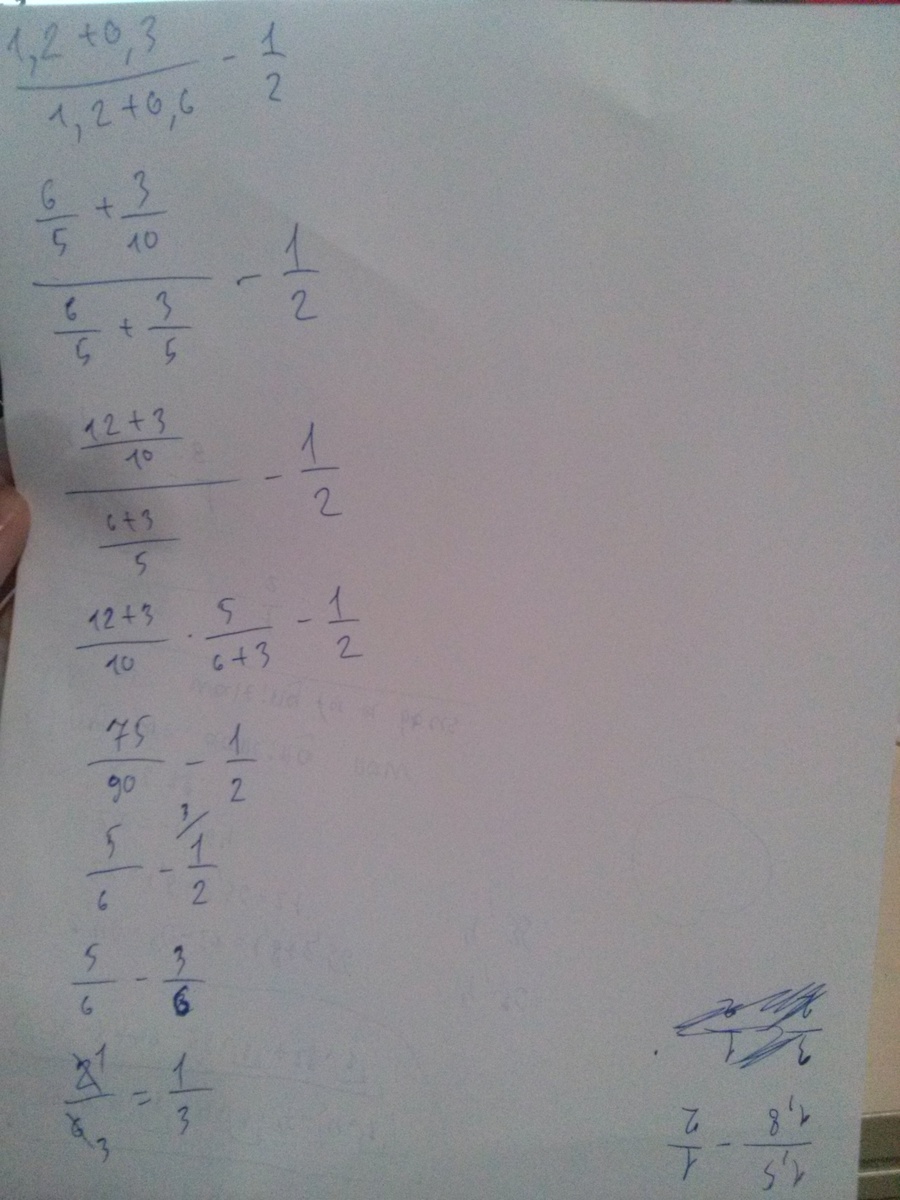 (1,2+0,3)/(1,2+0,6) - 1/2
(6/5 + 3/10)/(6/5 + 3/5) - 1/2
((12+3)/10)/((6+3)/5) - 1/2
(12+3)/10 · 5/(6+3) - 1/2
75/90 - 1/2
5/6 - 3/ 1/2
5/6 - 3/6
2 1/6 3 = 1/3
1,5/1,8 - 1/2